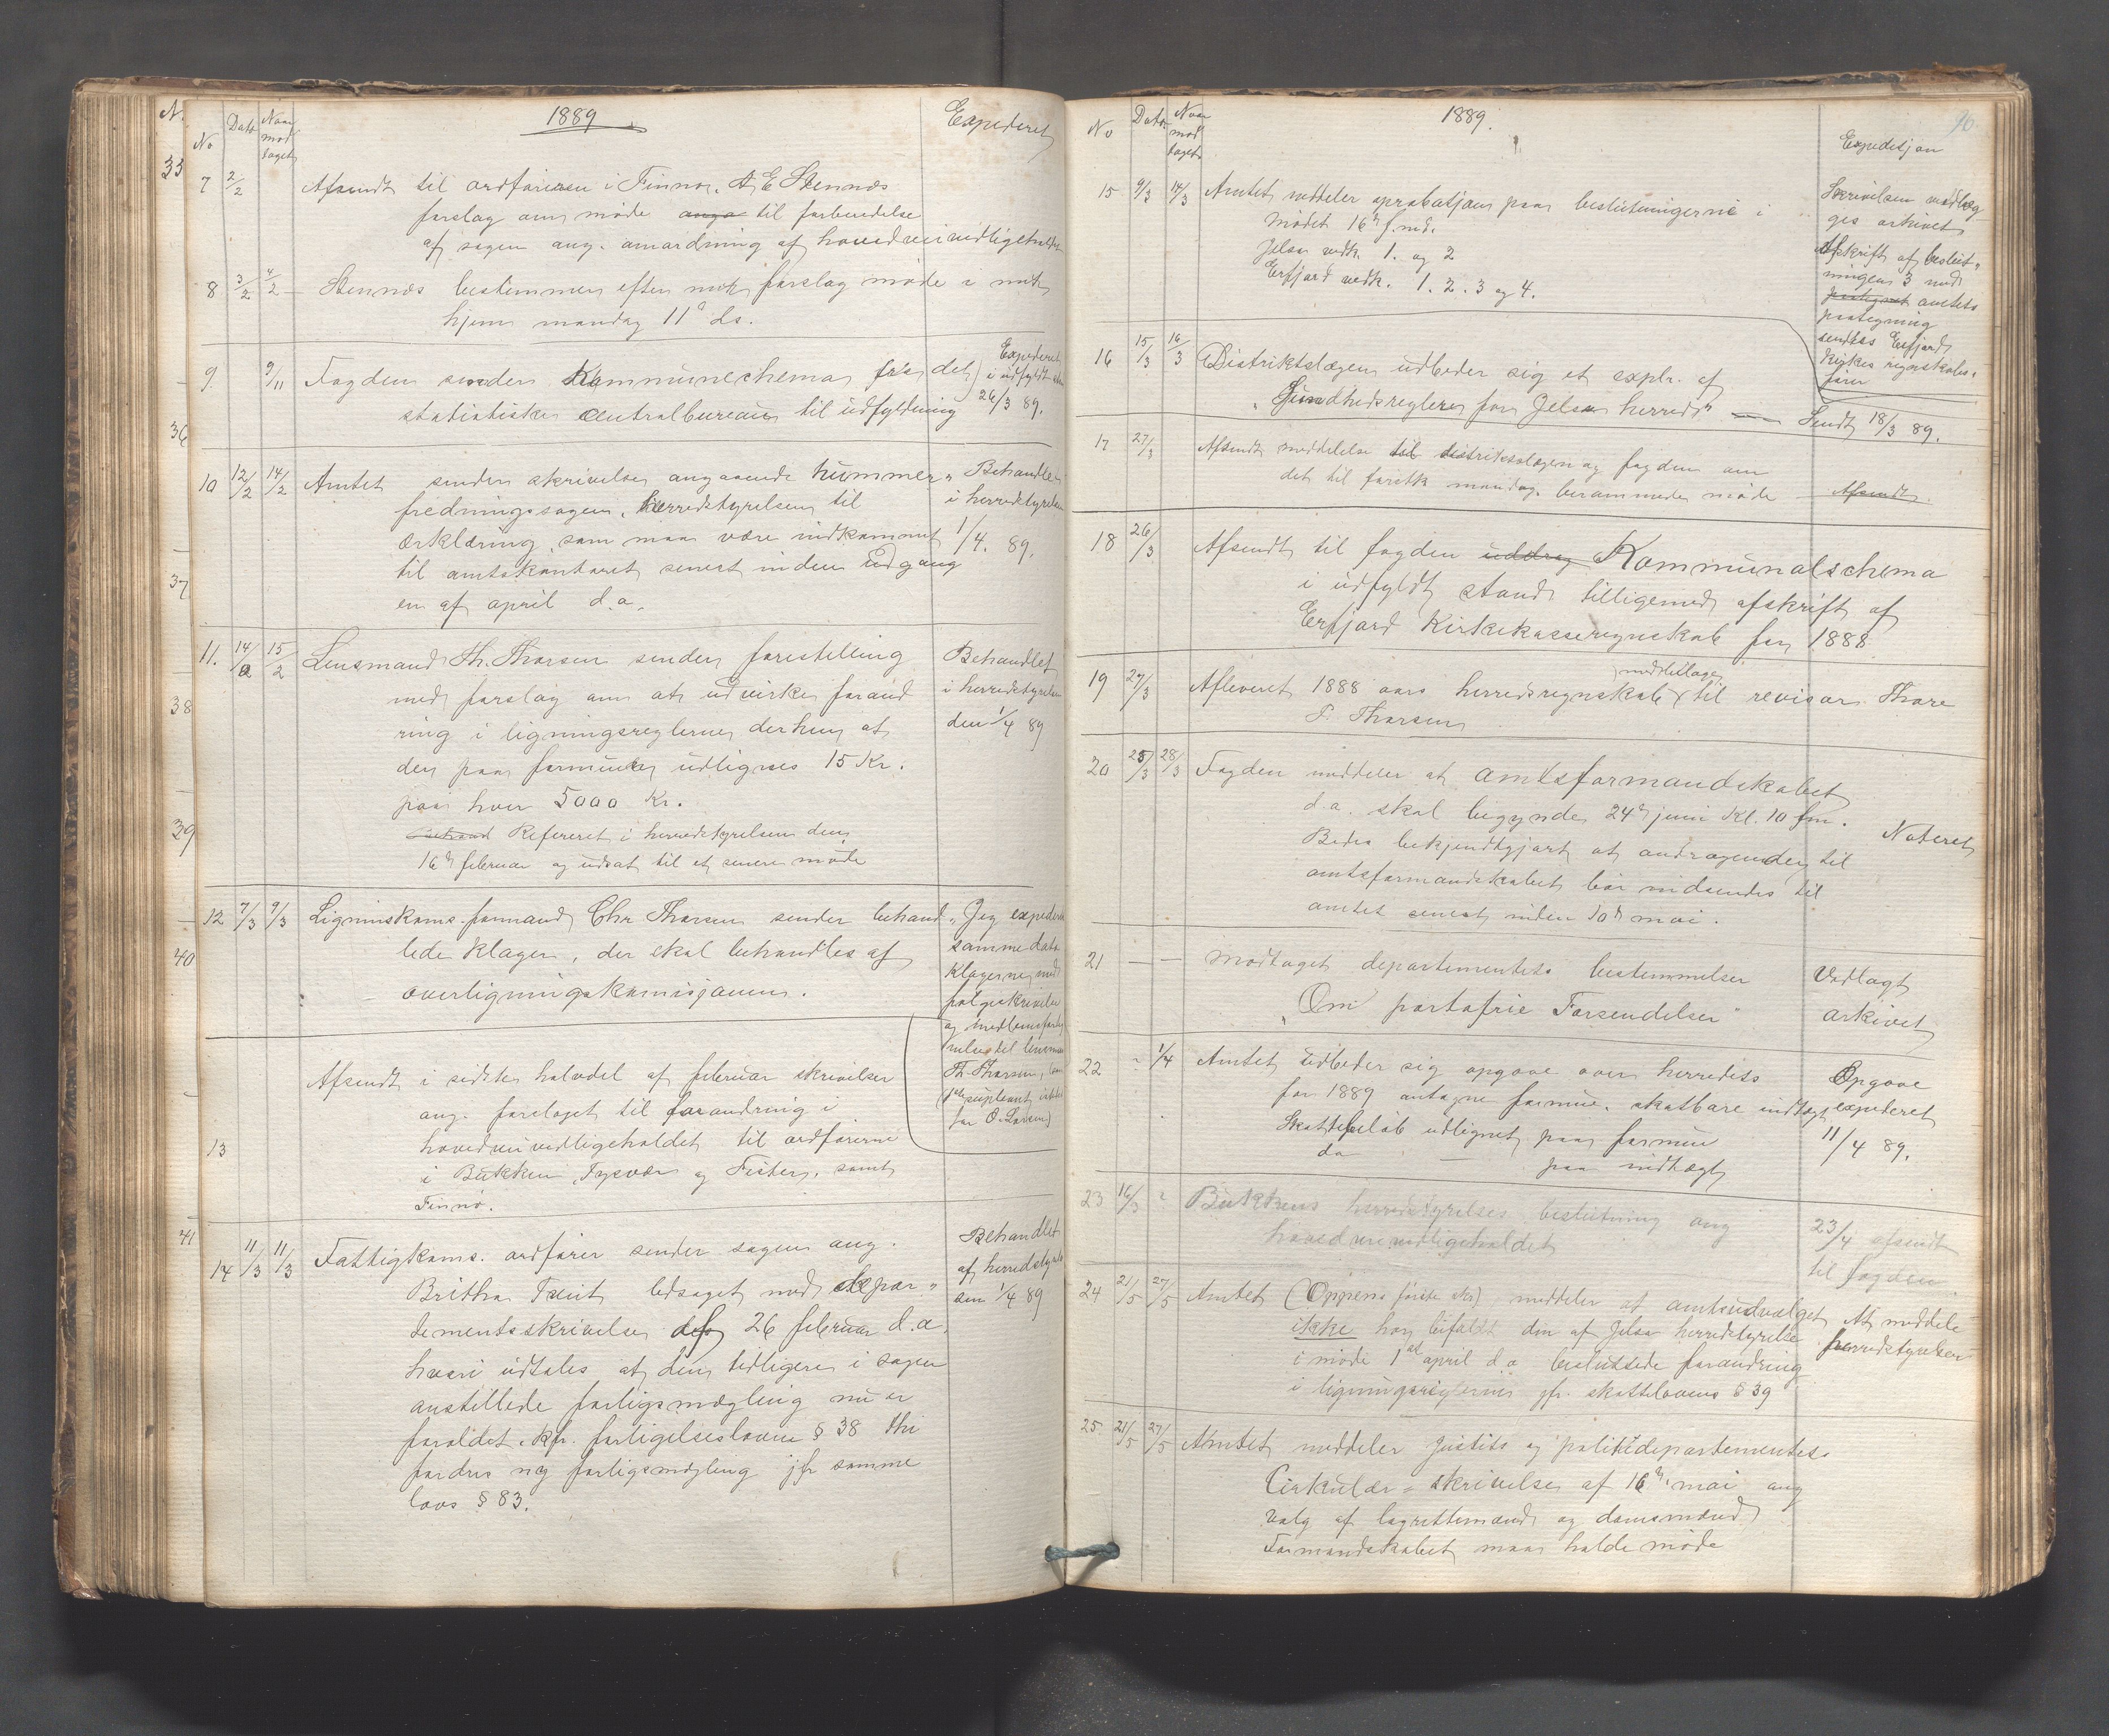 No
Dat
Naar mod taget
1889
Expederet
7 2/2 Afsendt til ordføreren i Finnø, A E Stennæs
forslag om møde ango til forberedelse
af sagen ang. omordning af hovedveivedligeholdet
8 3/2 4/2 Stennæs bestemmer efter mit forslag møde i mit
hjem mandag 11te ds.
9 9/11 Fogden sender Kommuneschema fra det
statistiske centralbureau til udfyldning
Expederet
i udfyldt stan
26/3 89.
10 12/2 14/2 Amtet sender skrivelse angaaende hummer-
fredningssagen, herredstyrelsen til
erklæring, som maa være indkommet
til amtskontoret senest inden udgang
en af april d.a.
Behandlet
i herredstyrelsen
1/4. 89.
11. 14/2 15/2 Lensmand Th. Thorsen sender forestilling
med forslag om at udvirke forand
ring i ligningsreglerne derhen at
der paa formue udlignes 15 Kr.
paa hver 5000 Kr.
Refereret i herredstyrelsen den
16de februar og udsat til et senere møde
Behandlet
i herredstyrelsen
den 1/4 89
12 7/3 9/3 Ligninskoms. formand Chr Thorsen sender behand
lede klager, der skal behandles af
overligningskomisjonen.
"Jeg expederer
samme dato
klagerne med
følgeskrivelse
og medlemsforteg
nelse til lensman
Th. Thorsen,
(1ste supleant
for O. Larsen)
13
Afsendt i sidste halvdel af februar skrivelser
ang. forslaget til forandring i
hovedveivedligeholdet til ordførerne
i Bukken, Tysvær og Fister, samt
Finnø.
14 11/3 11/3 Fattigkoms. ordfører sender sagen ang.
Britha Tveit ledsaget med depar-
tementsskrivelse af 26 februar d.a.
hvori udtales at den tidligere i sagen
anstillede forligsmægling nu er
foraldet, kfr. forligelseslovens § 38 thi
fordres ny forligsmægling jfr samme
lovs § 83.
Behandlet
af herredstyrels
den 1/4 89
33
36
37
38
39
40
41
No
Dato
Naar mod taget
1889.
Expedisjon
90.
15 9/3 14/3 Amtet meddeler aprobatsjon paa beslutningerne i
mødet 16de f. md.
Jelsa vedk. 1. og 2
Erfjord vedk. 1. 2. 3 og 4.
Skrivelsen vedlæg
ges arkivet
Afskrift af beslut-
ningen 3 med
amtets
paategning
sendtes Erfjord
Kirkes regnskabs-
fører
16 15/3 16/3 Distriktslægen udbeder sig et explr. af
"Sundhedsregler for Jelsa herred" — Sendt 18/3 89.
17 27/3 Afsendt meddelelse til distriktslægen og fogden om
det til førstk mandag berammede møde — Afsendt.
18 26/3 Afsendt til fogden uddrag Kommunalschema
i udfyldt stand tilligemed afskrift af
Erfjord Kirkekasseregnskab for 1888
19 27/3 Afleveret 1888 aars herredsregnskab med bilage til revisor Thore
T. Thorsen
20 25/3 28/3 Fogden meddeler at amtsformandskabet
d.a. skal begynde 24de juni Kl. 10 fm.
Bedes bekjendtgjort at andragender til
amtsformandskabet bør indsendes til
amtet senest inden 10de mai.
Noteret
21 — — Modtaget departementets bestemmelser
"Om portofrie Forsendelser"
Vedlagt
arkivet
22 ? 1/4 Amtet udbeder sig opgave over herredets
for 1889 antagne formue. skatbare indtægt
Skattebeløb udlignet paa formue
do — paa indtægt
Opgave
expederet
11/4 89.
23 16/3 ? Bukkens herredstyrelses beslutning ang
hovedveivedligeholdet
23/4 afsendt
til fogden
24 21/5 27/5 Amtet (Oppens første skr) meddeler at amtsudvalget
ikke har bifaldt den af Jelsa herredstyrelse
i møde 1ste april d.a besluttede forandring
i ligningsreglerne jfr. skattelovens § 39
At meddele
herredstyrelsen
25. 21/5 27/5 Amtet meddeler Justits og politidepartementets
Cirkulær-skrivelse af 16de mai ang
valg af lagrettemænd og domsmænd
Formandskabet maa holde møde